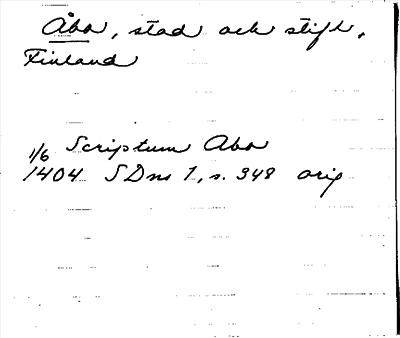 Åbo, stad och stift,
Finland
1/6 Scriptum Abo
1404 SDns 1, s. 348 orig